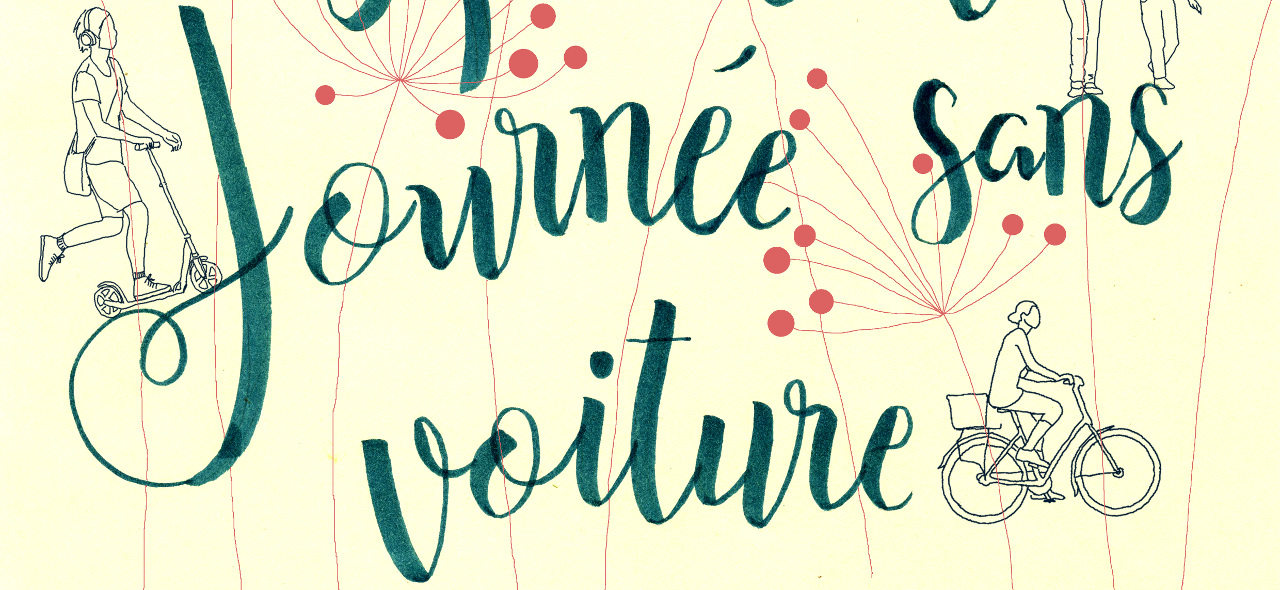 Journée sans
voiture